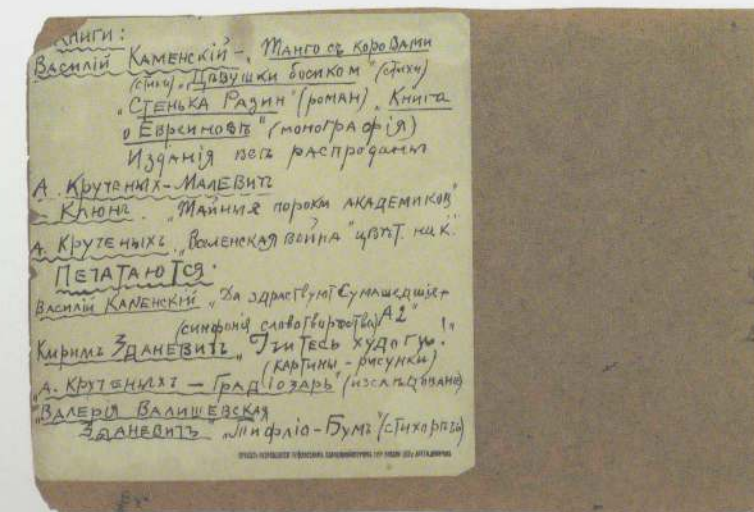 Книги:
Василій Каменскій – „Танго съ коровами
(стихи) „Дѣвушки босиком" (стихи)
„Стенька Разин" (роман) „Книга
„Евреиновѣ" (монографія)
Изданія всѣ распроданы
А. Крученых – Малевичъ
– Клюнъ. „Тайныя пороки академиков"
А. Крученыхъ „Вселенская война" цвѣт. нак.
Печатаются:
Василій Каменскій „Да здраствуют Сумашедшія"
(синфонія словотворчества) А2"
Кирилъ Зданевичъ „Учитесь худоги!"
(картины – рисунки)
„А. Крученыхъ – Градіозарь" (изслѣдование)
„Валерія Валишевская
Зданевичъ „Тифлис-Бумъ" (стихорѣчь)